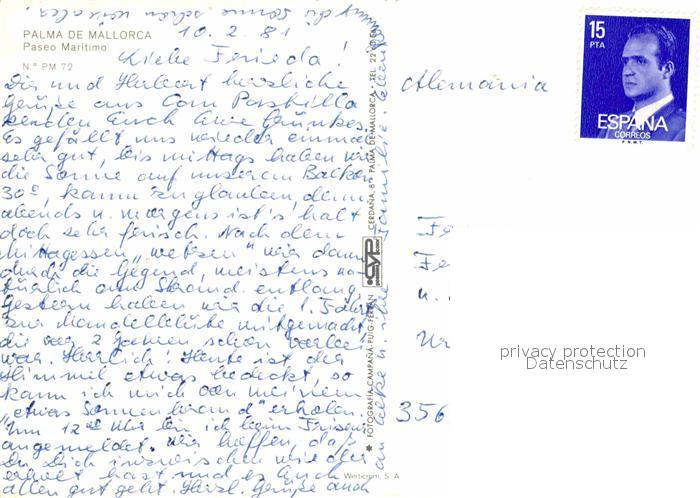 PALMA DE MALLORCA
Paseo Marítimo
N.º PM 72
10.2.81
Liebe Frieda!
Dir und Herbert herzliche
Grüße aus Can Pastilla
senden Euch Eure
Es gefällt uns wieder einmal
sehr gut, bis mittags haben wir
die Sonne auf unserem Balkon
30°, kaum zu glauben, denn
abends u. morgens ist's halt
doch sehr frisch. Nach dem
Mittagessen „wetzen" wir dann
durch die Gegend, meistens na-
türlich am Strand entlang.
Gestern haben wir die 1. Fahrt
zur Mandelblüte mitgemacht,
die vor 2 Jahren schon vorbei
war. Herrlich! Heute ist der
Himmel etwas bedeckt, so
kann ich mich von meinem
„etwas Sonnenbrand" erholen.
Um 12 Uhr bin ich beim Friseur
angemeldet. Wir hoffen, daß
Du Dich inzwischen wieder
erholt hast und es Euch
allen gut geht. Herzl. Grüße auch
an u. ihre Familie.
FOTOGRAFIA CAMPAÑA-PUIG-FERRAN
CYP
CERDAÑA, 8 - PALMA DE MALLORCA - TEL. 22
Werticrom, S. A.
15
PTA
ESPAÑA
CORREOS
F.N.M.T.
Alemania
u.
356
privacy protection
Datenschutz